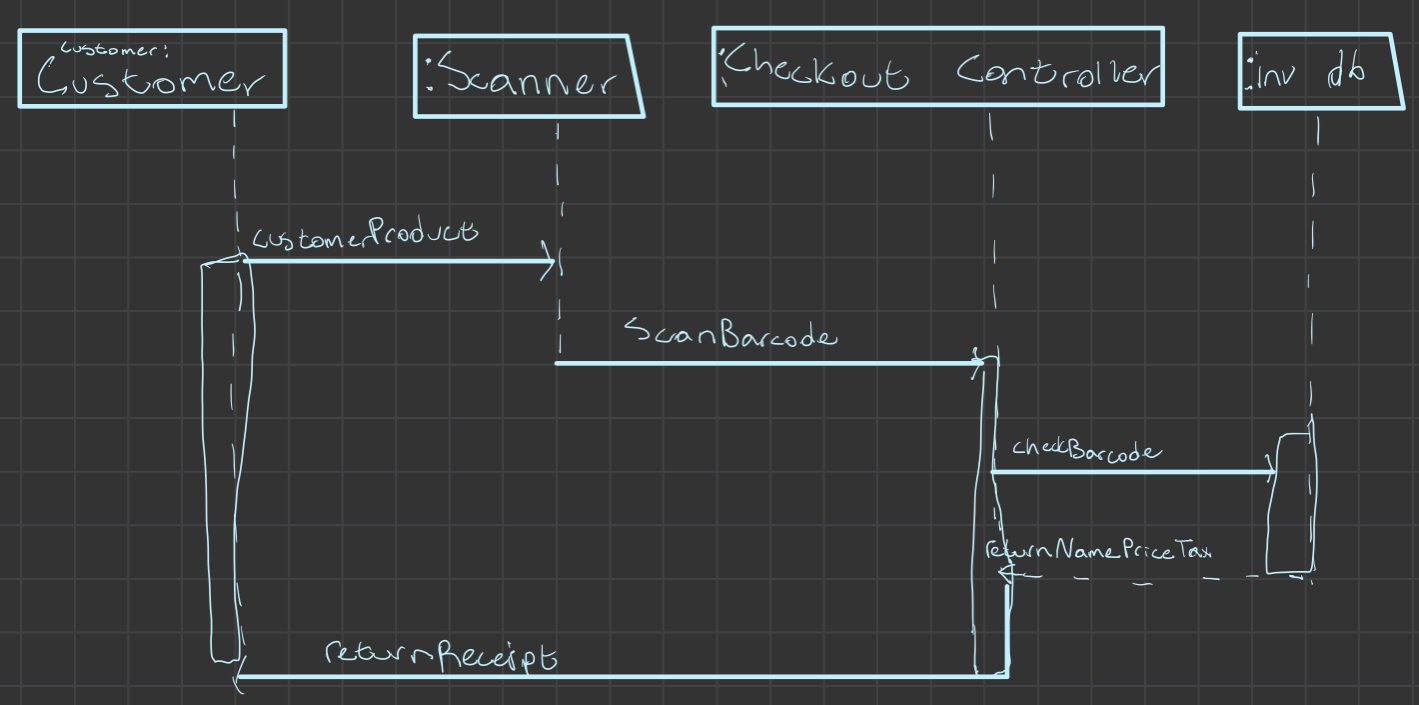 customer:
Customer
:Scanner
:Checkout Controller
:inv db
customerProduct
ScanBarcode
checkBarcode
returnNamePriceTax
returnReceipt